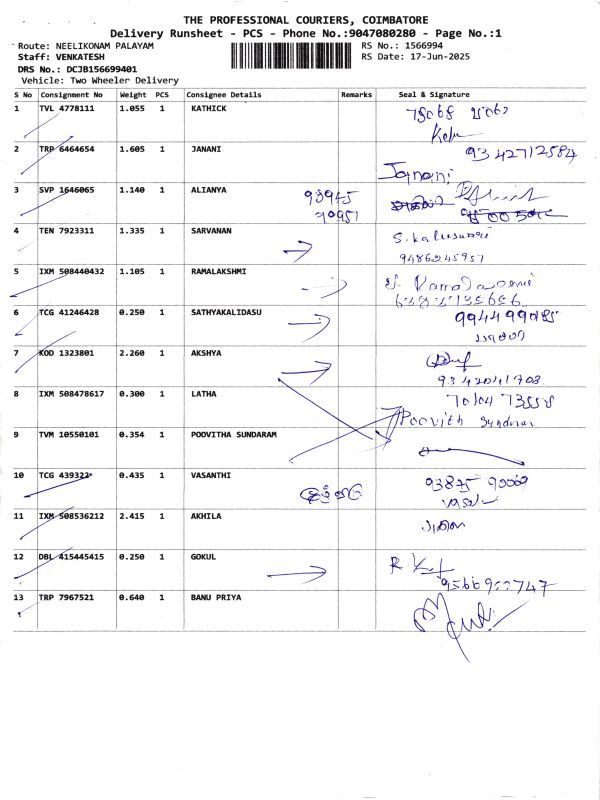 THE PROFESSIONAL COURIERS, COIMBATORE
Delivery Runsheet - PCS - Phone No.:9047080280 - Page No.:1
Route: NEELIKONAM PALAYAM RS No.: 1566994
Staff: VENKATESH RS Date: 17-Jun-2025
DRS No.: DCJB156699401
Vehicle: Two Wheeler Delivery
S No Consignment No Weight PCS Consignee Details Remarks Seal & Signature
1 TVL 4778111 1.055 1 KATHICK
2 TRP 6464654 1.605 1 JANANI 9342712584
Janani
3 SVP 1646065 1.140 1 ALIANYA 93945
90951
4 TEN 7923311 1.335 1 SARVANAN
9486245957
5 IXM 508440432 1.105 1 RAMALAKSHMI
6 TCG 41246428 0.250 1 SATHYAKALIDASU
7 KOD 1323801 2.260 1 AKSHYA
9342041708
8 IXM 508478617 0.300 1 LATHA
Poovith Sundaran
9 TVM 10550101 0.354 1 POOVITHA SUNDARAM
10 TCG 439322 0.435 1 VASANTHI
11 IXM 508536212 2.415 1 AKHILA
12 DBL 415445415 0.250 1 GOKUL
13 TRP 7967521 0.640 1 BANU PRIYA